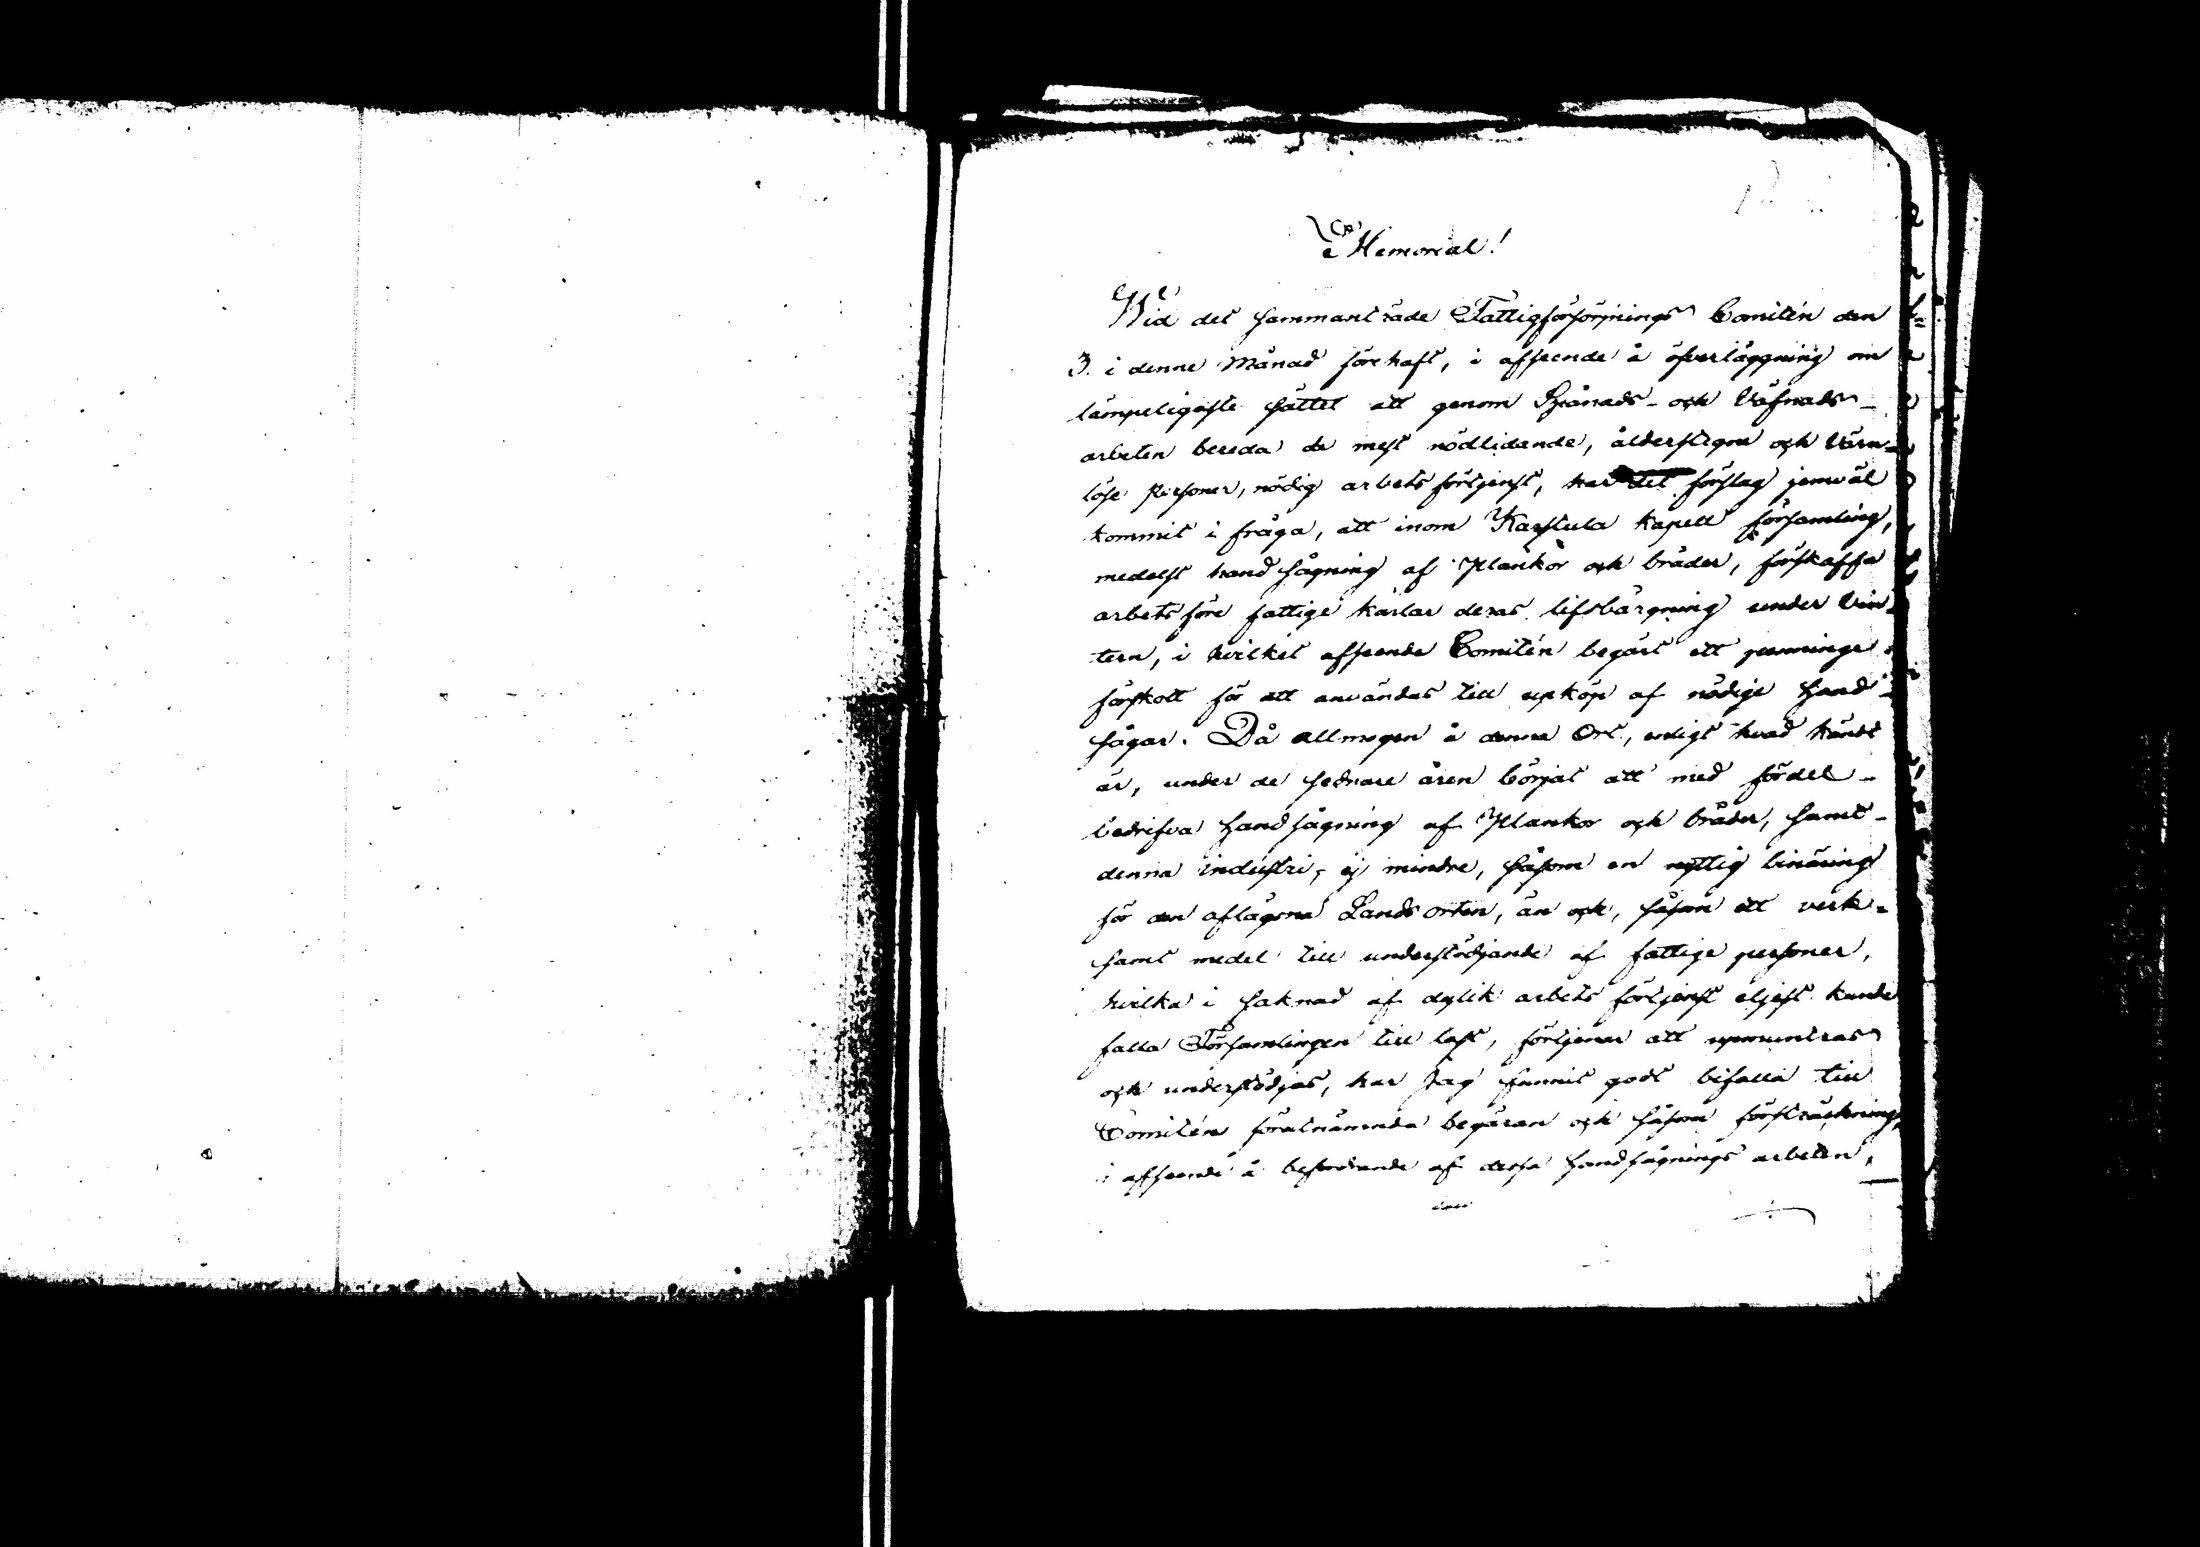 Memorial!
Wid det sammanträde Fattigförsörjnings Comitén den
3. i denne Månad förehaft, i afseende å öfverläggning om
lämpeligaste sättet att genom Spånads- och Väfnads-
arbeten bereda de mest nödlidande, ålderstigne och Värn-
löse Personer, nödig arbetsförtjenst, har det förslag jemväl
kommit i fråga, att inom Karstula kapell församling,
medelst handsågning af Plankor och bräder, förskaffa
arbetsföre fattige karlar deras lifsbärgning under Vin-
tern, i hvilket afseende Comitén begärt ett pennings
förskott för att användas till upköp af nödige hand-
sågar. Då allmogen å denna Ort, enligt hvad kändt
är, under de sednare åren börjat att med fördel-
bedrifva handsågning af Plankor och bräder, samt-
denna industri, ej mindre, såsom en nyttig binäring
för den aflägsna Landsorten, än och, såsom ett verk-
samt medel till understödjande af fattige personer,
hvilka i saknad af dylik arbetsförtjenst eljest kunde
falla Församlingen till last, förtjenar att upmuntras
och understödjas, har Jag funnit godt bifalla till
Comiténs förutnämnda begäran och såsom försträckning,
i afseende å befordrande af dessa handsågnings arbeten,